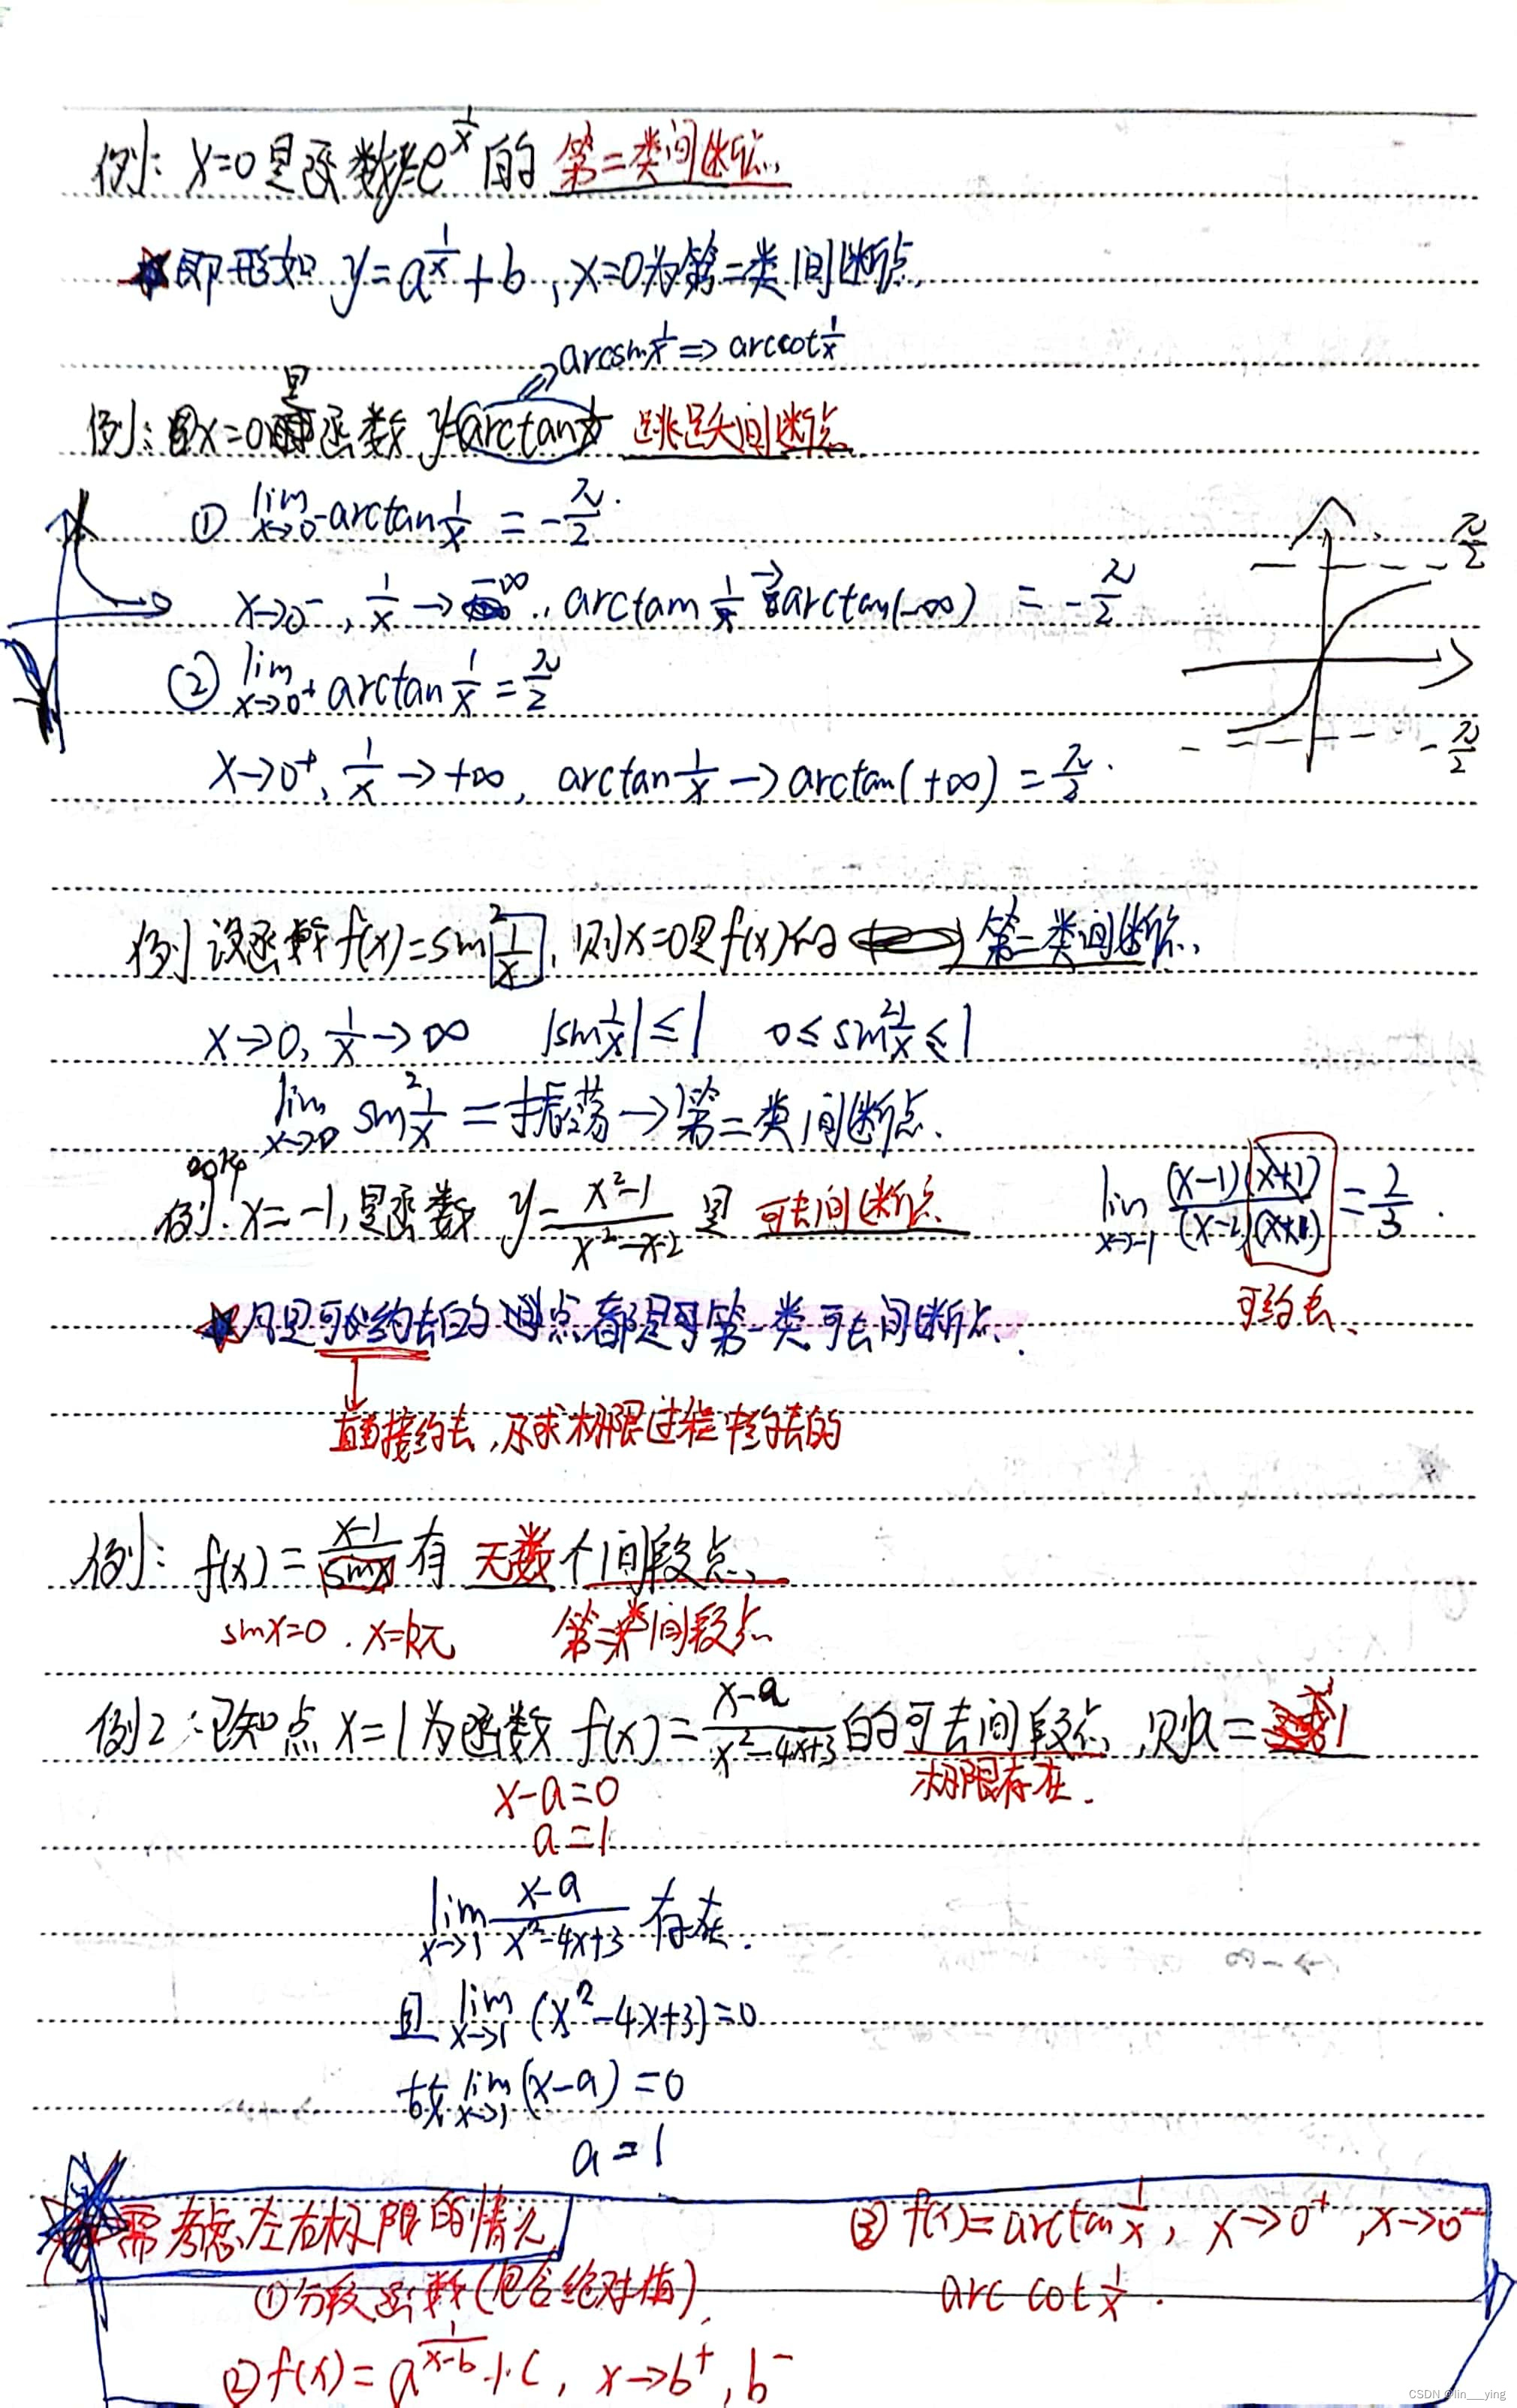 例: x=0是函数y=e^{1/x}的 第二类间断点.
★即形如 y=a^{1/x}+b, x=0为第二类间断点.
arcsin 1/x => arccot 1/x
例: x=0是函数 y=arctan 1/x 跳跃间断点
① lim x→0⁻ arctan 1/x = -π/2.
π/2
x→0⁻, 1/x → -∞, arctan 1/x → arctan(-∞) = -π/2
② lim x→0⁺ arctan 1/x = π/2
-π/2
x→0⁺, 1/x → +∞, arctan 1/x → arctan(+∞) = π/2.
例 设函数 f(x)=sin² 1/x, 则x=0是f(x)的 第二类间断点.
x→0, 1/x → ∞ |sin 1/x| ≤ 1 0 ≤ sin² 1/x ≤ 1
lim x→0 sin² 1/x = 振荡 → 第二类间断点.
2014
例. x=-1, 是函数 y=(x²-1)/(x²-x-2) 是 可去间断点 lim x→-1 (x-1)(x+1)/(x-2)(x+1) = 2/3.
可约去.
★凡是可以约去的 点都是 第一类可去间断点.
直接约去, 求极限过程中约去的
例: f(x)=(x-1)/sinx 有 无数个间段点.
sinx=0. x=kπ 第二类间段点
例2: 已知点 x=1为函数 f(x)=(x-a)/(x²-4x+3)的可去间段点, 则a=1
x-a=0 极限存在.
a=1
lim x→1 (x-a)/(x²-4x+3) 存在.
且 lim x→1 (x²-4x+3)=0
故 lim x→1 (x-a)=0
a=1
需考虑左右极限的情况 ③ f(x)=arctan 1/x, x→0⁺, x→0⁻
①分段函数(包含绝对值). arc cot 1/x.
② f(x)=a^{1/(x-b)}+c, x→b⁺, b⁻
CSDN @lin___ying